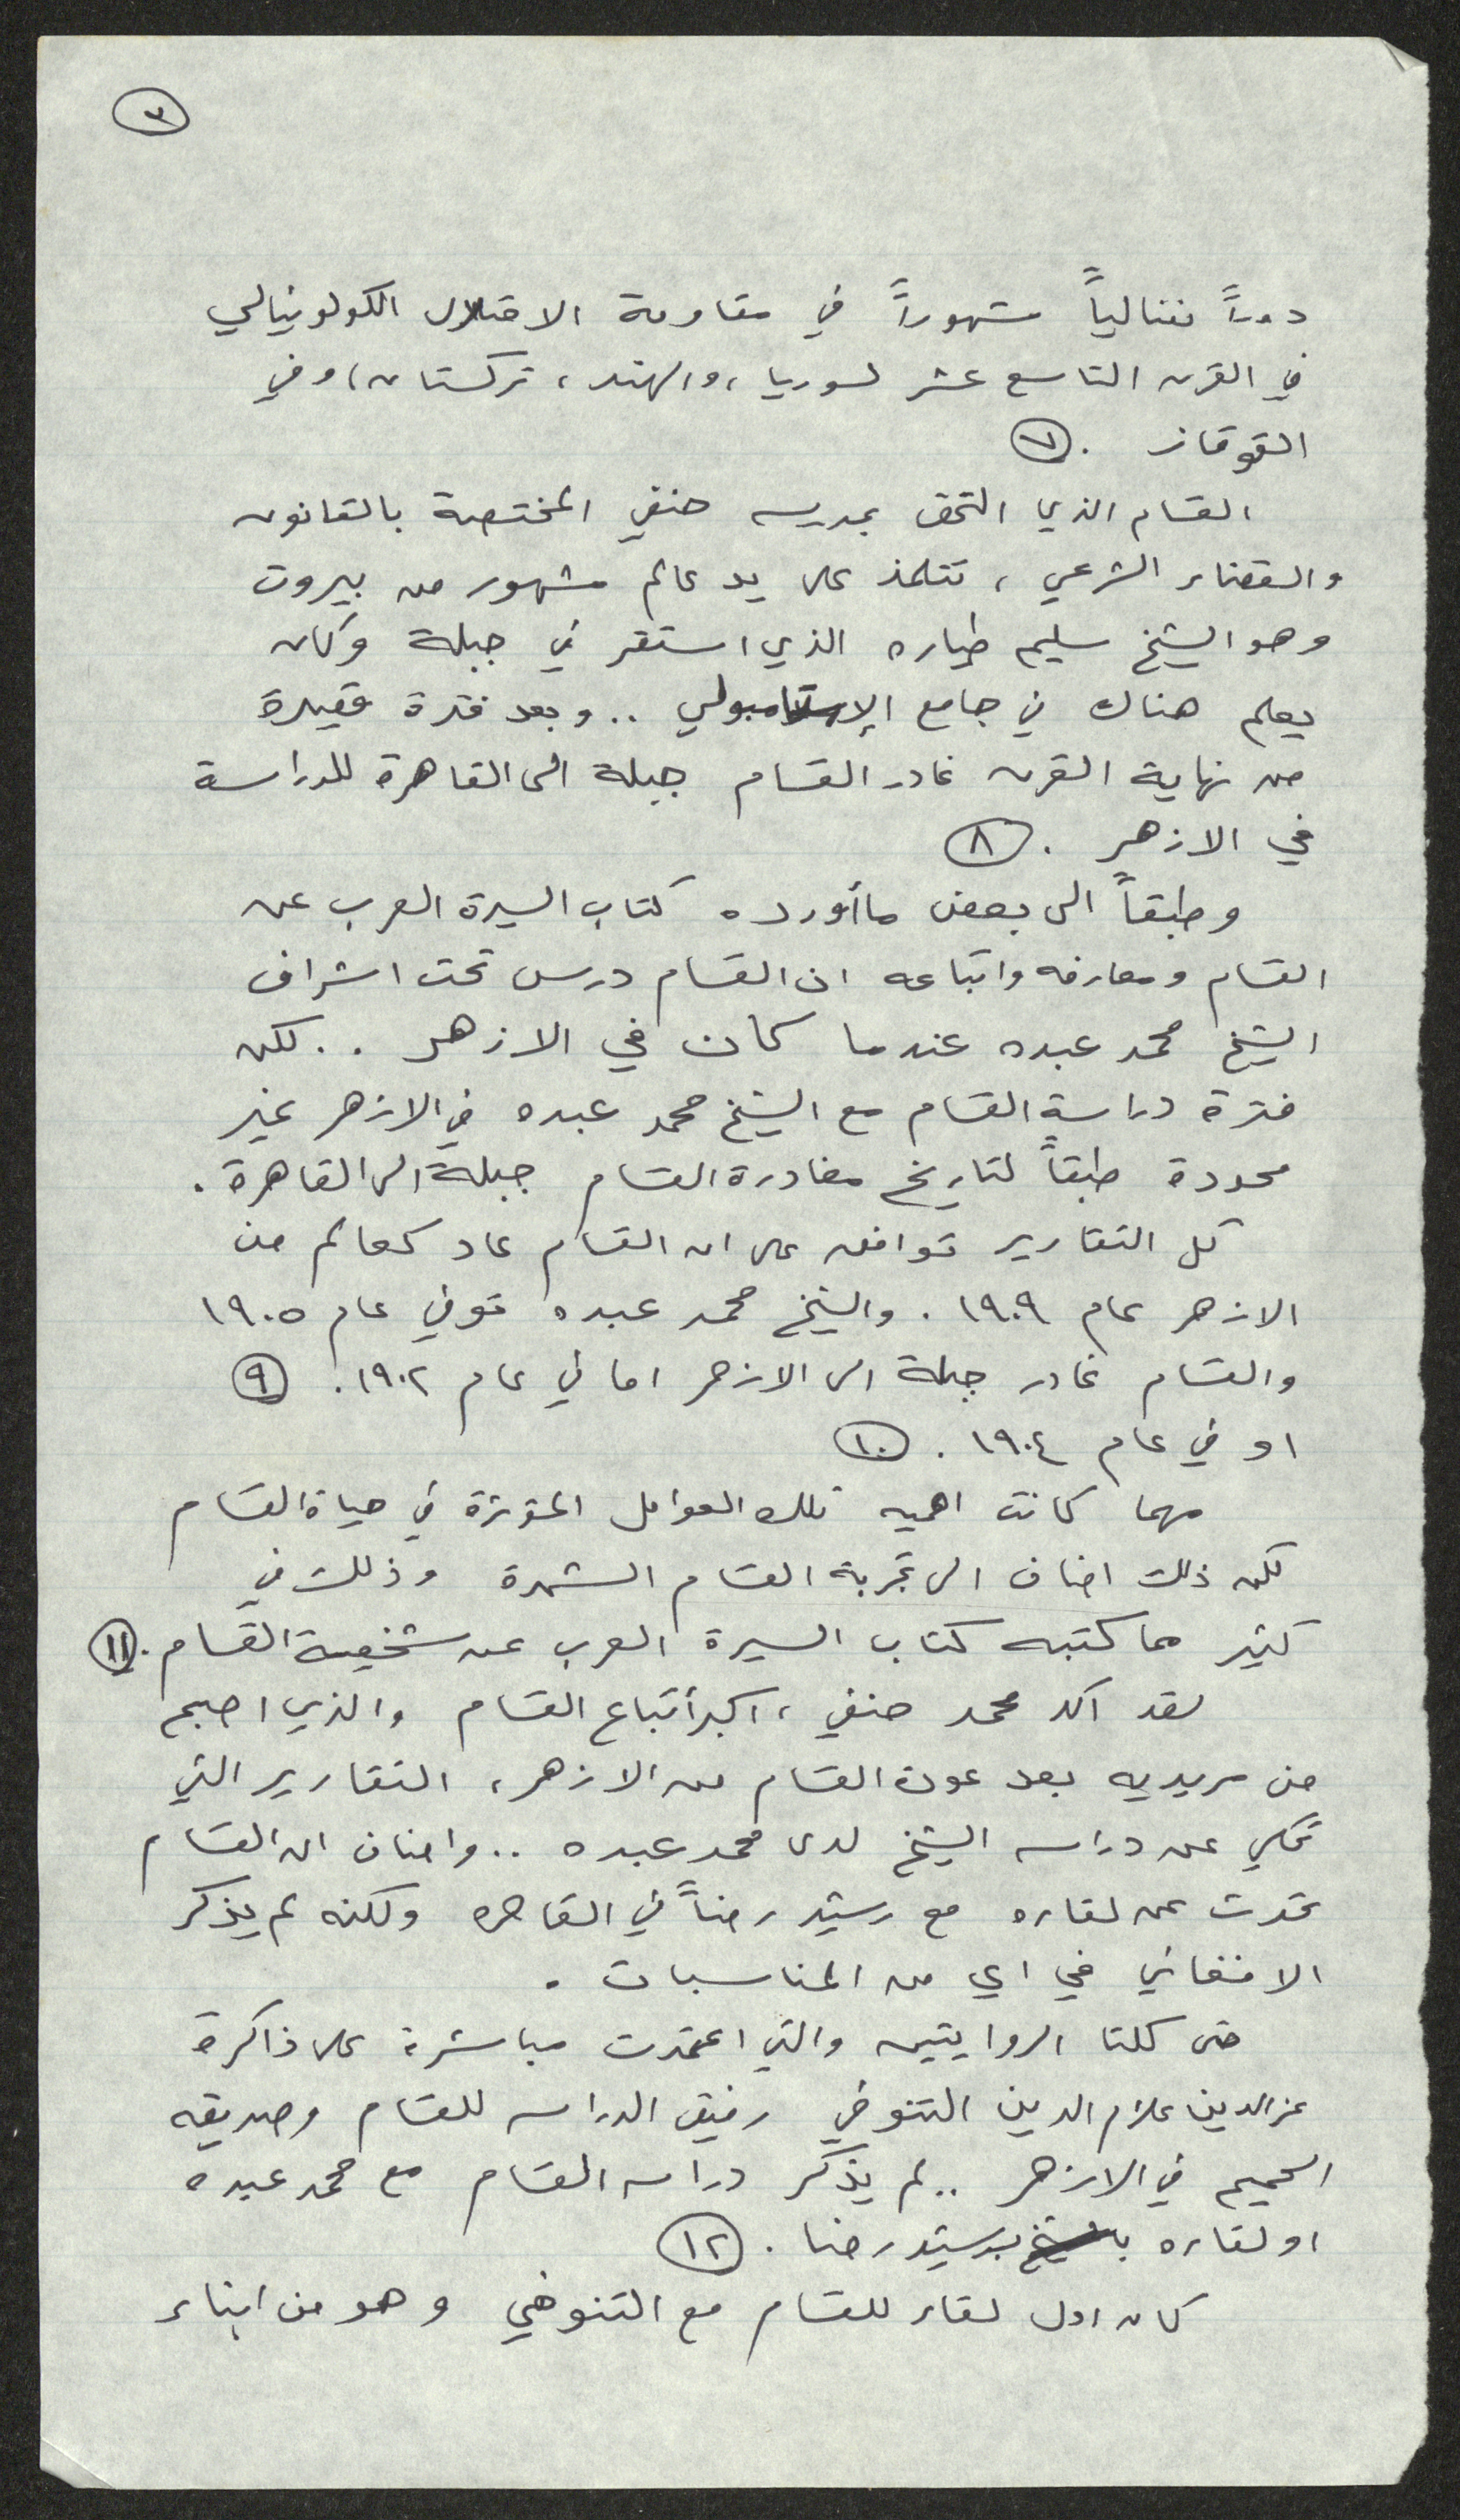 ٣
دوراً نضالياً مشهوراً في مقاومة الاحتلال الكولونيالي
في القرن التاسع عشر لسوريا ، والهند ، تركستان ، وفي
القوقاز . ٧
القسام الذي التحق بمدرسه حنفي المختصة بالقانون
والقضاء الشرعي ، تتلمذ على يد عالم مشهور من بيروت
وهو الشيخ سليم طياره الذي استقر في جبلة وكان
يعلم هناك في جامع الإستامبولي .. وبعد فترة قصيرة
من نهاية القرن غادر القسام جبلة الى القاهرة للدراسة
في الازهر . ٨
وطبقاً الى بعض ما أورده كتاب السيرة العرب عن
القسام ومعارفه واتباعه ان القسام درس تحت اشراف
الشيخ محمد عبده عندما كان في الازهر .. لكن
فترة دراسة القسام مع الشيخ محمد عبده في الازهر غير
محددة طبقاً لتاريخ مغادرة القسام جبلة الى القاهرة .
كل التقارير توافق على ان القسام عاد كعالم من
الازهر عام ١٩٠٩ . والشيخ محمد عبده توفي عام ١٩٠٥
والقسام غادر جبلة الى الازهر اما في عام ١٩٠٢ . ٩
او في عام ١٩٠٤ . ١٠
مهما كانت اهميه تلك العوامل المؤثرة في حياة القسام
لكن ذلك اضاف الى تجربة القسام الشهرة وذلك في
كثير مما كتبه كتاب السيرة العرب عن شخصية القسام . ١١
لقد اكد محمد حنفي ، اكبر أتباع القسام والذي اصبح
من مريديه بعد عودة القسام من الازهر ، التقارير التي
تحكي عن دراسه الشيخ لدى محمد عبده .. واضاف ان القسام
تحدث عن لقاءه مع رشيد رضاً في القاهره ولكنه لم يذكر
الافغاني في اي من المناسبات .
حتى كلتا الروايتين والتي اعتمدت مباشرة على ذاكرة
عز الدين علام الدين التنوخي رفيق الدراسه للقسام وصديقه
الحميم في الازهر .. لم يذكر دراسه القسام مع محمد عبده
او لقاءه برشيد رضا . ١٢
كان اول لقاء للقسام مع التنوخي وهو من ابناء